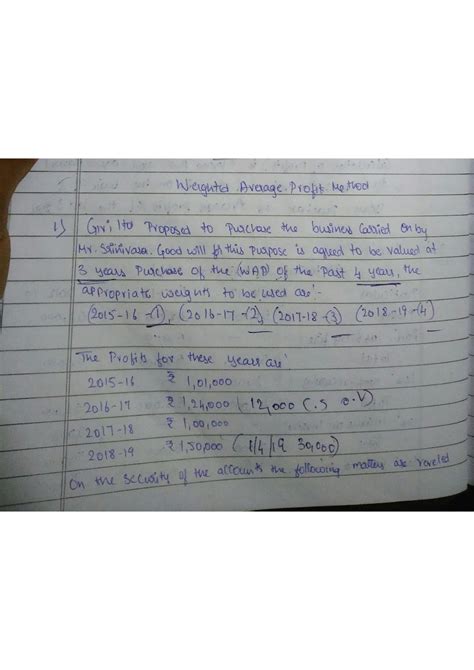 Weighted Average Profit Method
1) Giri ltd Proposed to Purchase the business Carried on by
Mr. Srinivasa. Good will for this Purpose is agreed to be valued at
3 years Purchase of the (WAP) of the Past 4 years, the
appropriate weights to be used are:-
(2015-16 -1), (2016-17 -2), (2017-18 -3) (2018-19 -4)
The Profits for these years are:
2015-16 ₹ 1,01,000
2016-17 ₹ 1,24,000 (-12,000 C.S O.V)
2017-18 ₹ 1,00,000
2018-19 ₹ 1,50,000 (1/4/19 30,000)
On the Security of the accounts the following matters are reveled